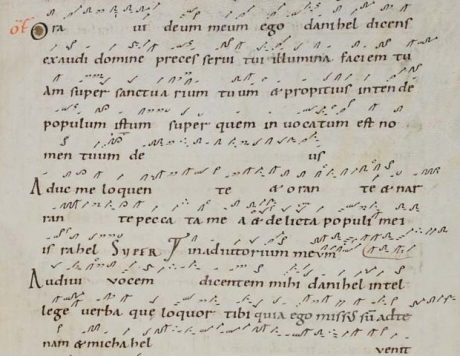 of Ora ui deum meum ego danihel dicens
exaudi domine preces serui tui illumina faciem tu
am super sanctua rium tuum & propitius intende
populum istum super quem inuocatum est no
men tuum de us
Aduc me loquen te & oran te & nar
ran te pecca ta me a & delicta populi mei
israhel SUPER inadiutorium meum
Audiui uocem dicentem mihi danihel intel
lege uerba que loquor tibi quia ego missus sum adte
nam & michahel uenit